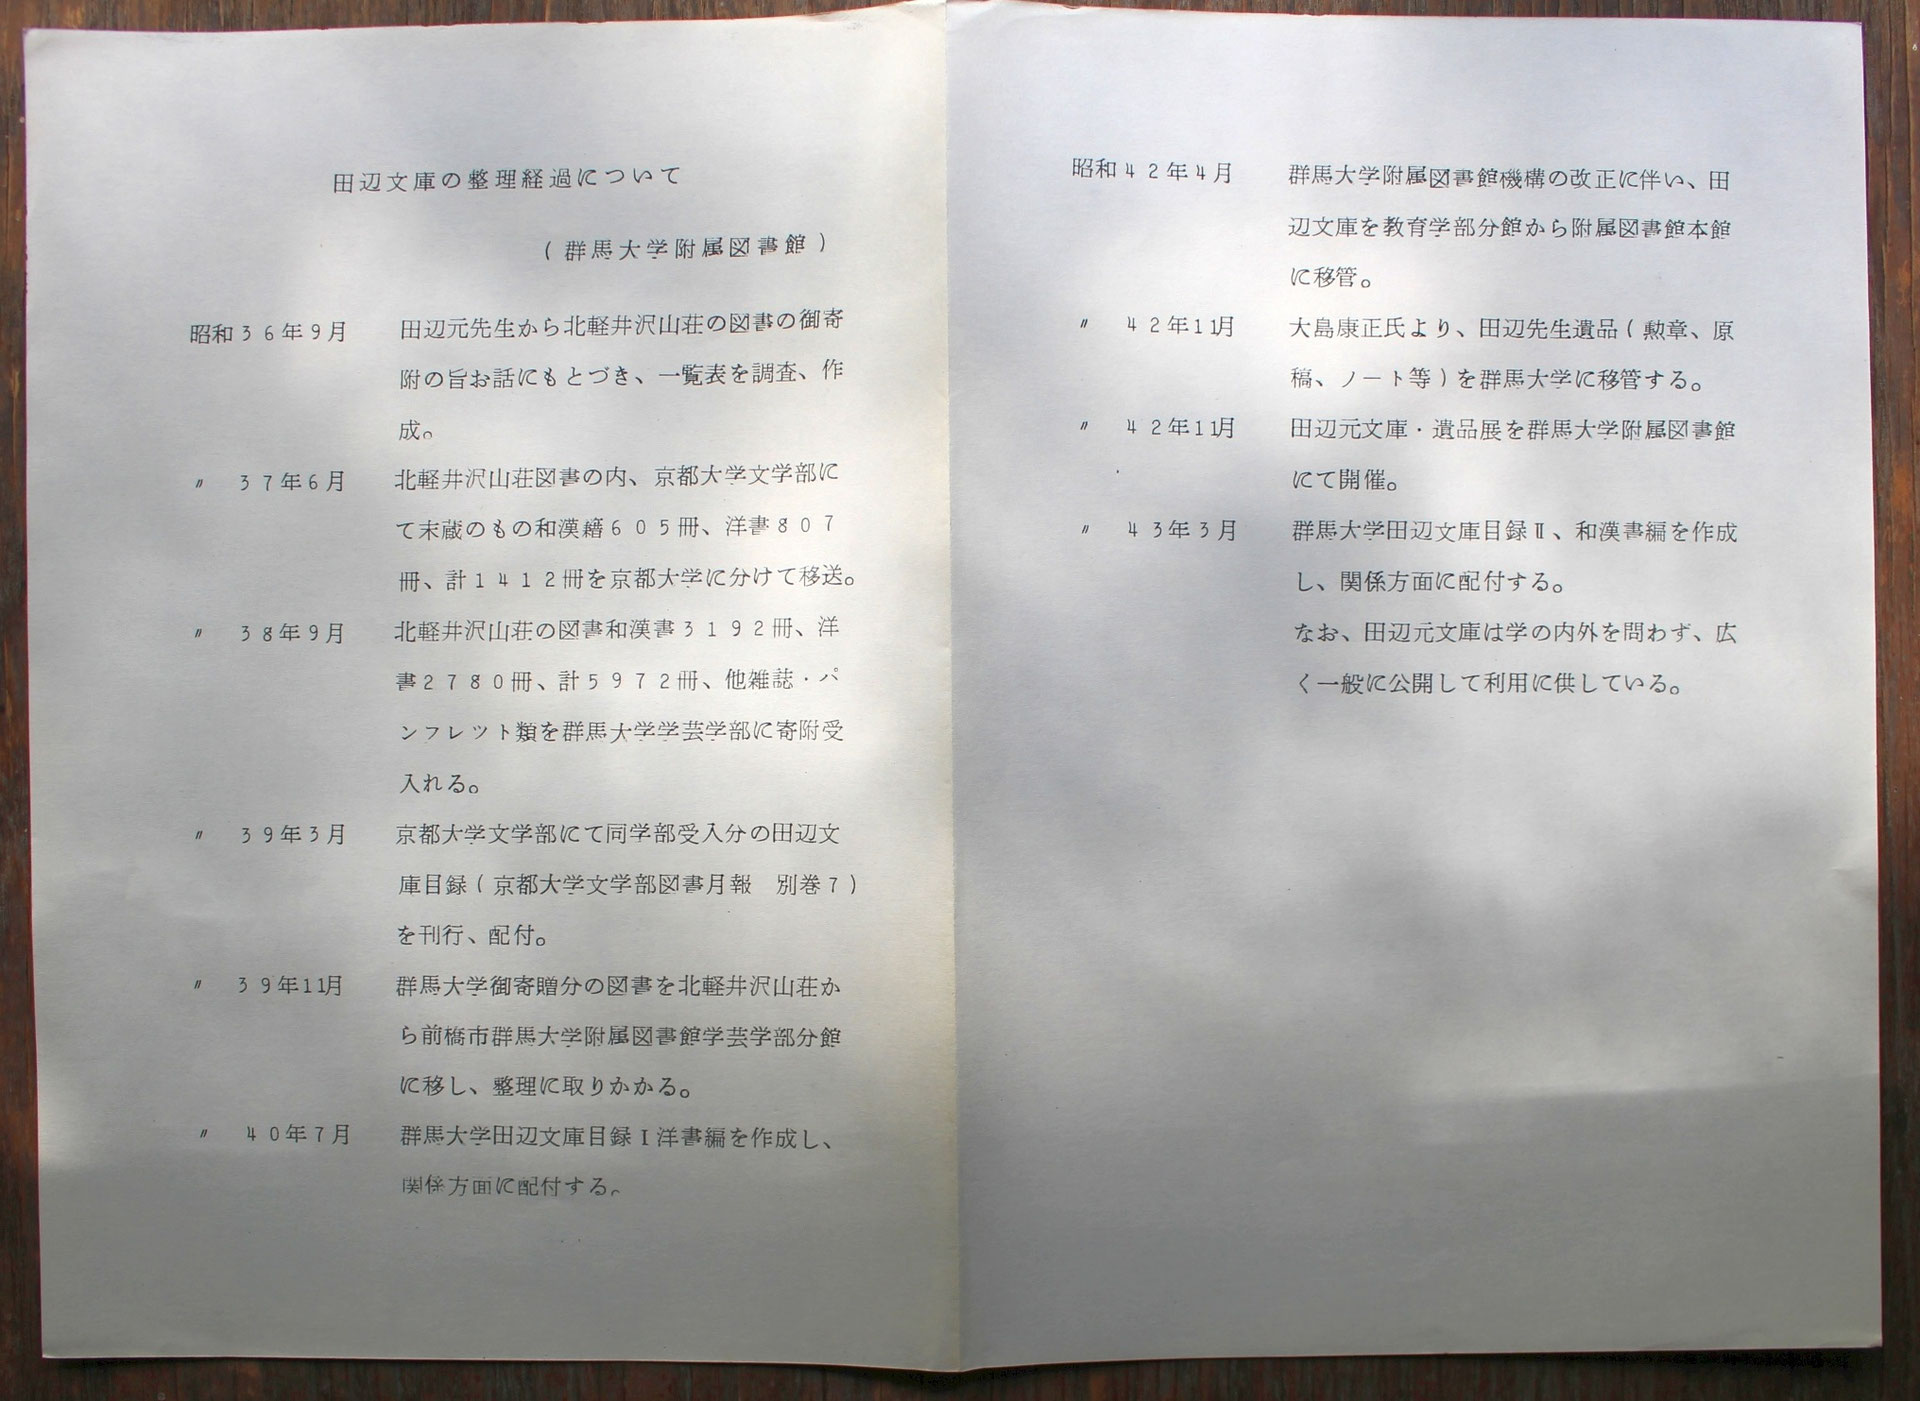 田辺文庫の整理経過について
(群馬大学附属図書館)
昭和36年9月 田辺元先生から北軽井沢山荘の図書の御寄
附の旨お話にもとづき、一覧表を調査、作
成。
〃 37年6月 北軽井沢山荘図書の内、京都大学文学部に
て末蔵のもの和漢籍605冊、洋書807
冊、計1412冊を京都大学に分けて移送。
〃 38年9月 北軽井沢山荘の図書和漢書3192冊、洋
書2780冊、計5972冊、他雑誌・パ
ンフレット類を群馬大学学芸学部に寄附受
入れる。
〃 39年3月 京都大学文学部にて同学部受入分の田辺文
庫目録(京都大学文学部図書月報 別巻7)
を刊行、配付。
〃 39年11月 群馬大学御寄贈分の図書を北軽井沢山荘か
ら前橋市群馬大学附属図書館学芸学部分館
に移し、整理に取りかかる。
〃 40年7月 群馬大学田辺文庫目録Ⅰ洋書編を作成し、
関係方面に配付する。
昭和42年4月 群馬大学附属図書館機構の改正に伴い、田
辺文庫を教育学部分館から附属図書館本館
に移管。
〃 42年11月 大島康正氏より、田辺先生遺品(勲章、原
稿、ノート等)を群馬大学に移管する。
〃 42年11月 田辺元文庫・遺品展を群馬大学附属図書館
にて開催。
〃 43年3月 群馬大学田辺文庫目録Ⅱ、和漢書編を作成
し、関係方面に配付する。
なお、田辺元文庫は学の内外を問わず、広
く一般に公開して利用に供している。